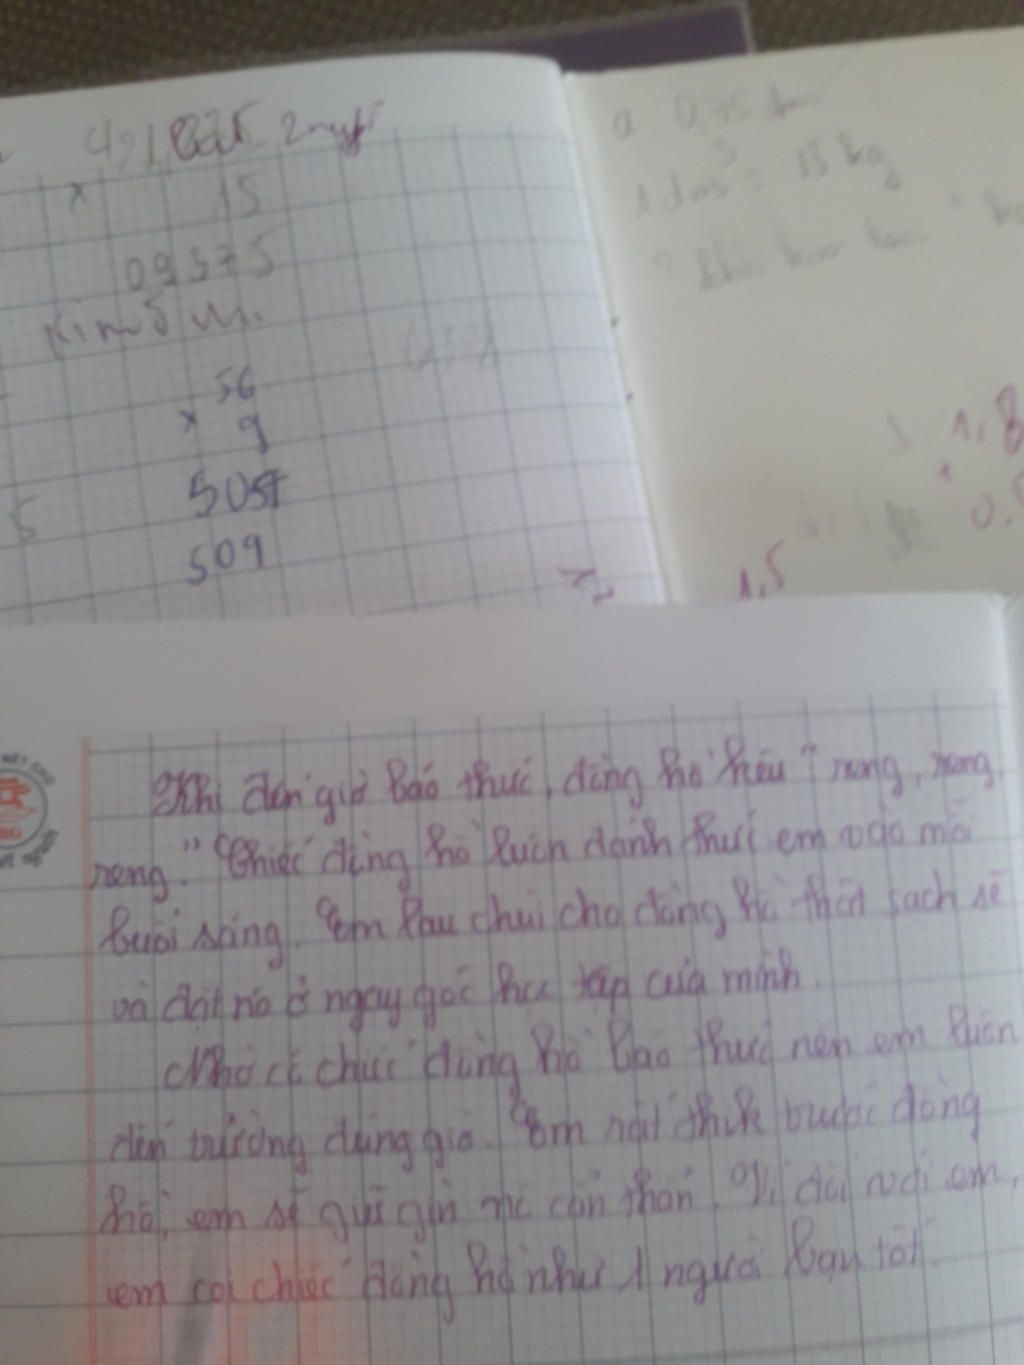 15
09375
56
x 9
504
509
5
a 0,75 dm
1 dm³ = 15 kg
1,8
0,
1,5
Khi đến giờ báo thức, đồng hồ kêu "reng, reng,
reng." Chiếc đồng hồ luôn đánh thức em vào mỗi
buổi sáng. Em lau chùi cho đồng hồ thật sạch sẽ
và đặt nó ở ngay góc học tập của mình.
Nhờ có chiếc đồng hồ báo thức nên em luôn
đến trường đúng giờ. Em rất thích đồng
hồ, em sẽ giữ gìn nó cẩn thận. Vì đối với em,
em coi chiếc đồng hồ như 1 người bạn tốt.